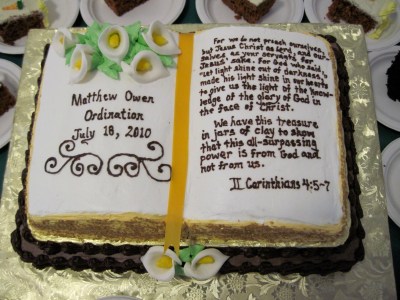 Matthew Owen
Ordination
July 18, 2010
For we do not preach ourselves,
but Jesus Christ as Lord, and our-
selves as your servants for
Jesus' sake. For God who said to
"let light shine out of darkness,"
made his light shine in our hearts
to give us the light of the know-
ledge of the glory of God in
the face of Christ.
We have this treasure
in jars of clay to show
that this all-surpassing
power is from God and
not from us.
II Corinthians 4:5-7